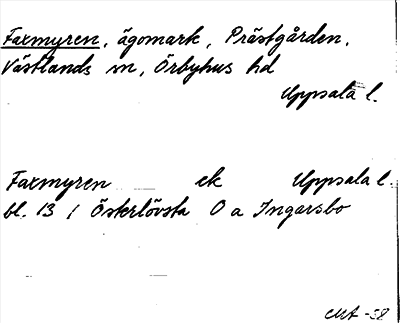 Faxmyren, ägomark, Prästgården,
Västlands sn, Örbyhus hd
Uppsala l.
Faxmyren ek Uppsala l.
bl. 13 / Österlövsta O a Ingarsbo
-58